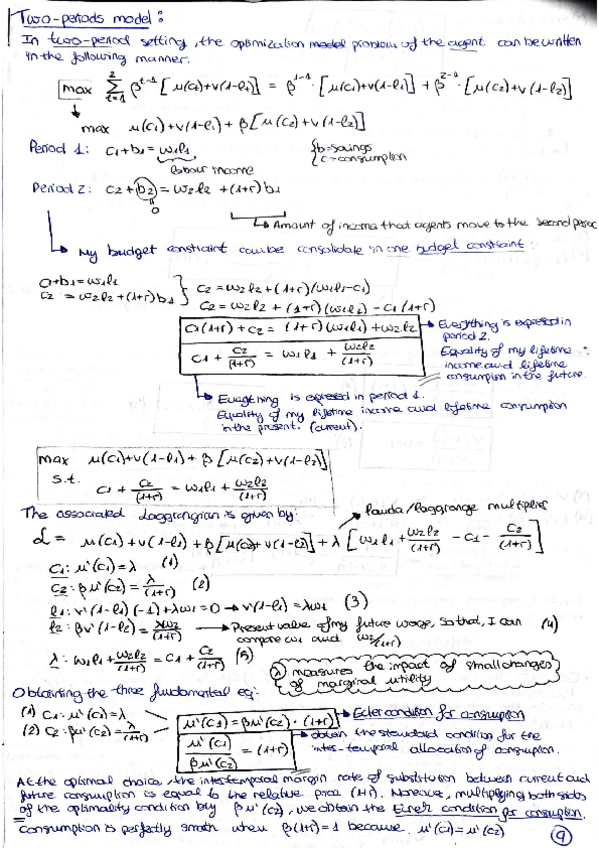 Two-periods model:
In two-period setting, the optimization model problem of the agent can be written
in the following manner.
max ∑_{t=1}^{2} β^{t-1} [u(ct)+v(1-lt)] = β^{1-1}·[u(c1)+v(1-l1)] + β^{2-1}·[u(c2)+v(1-l2)]
max u(c1)+v(1-l1)+β[u(c2)+v(1-l2)]
Period 1: c1+b1=w1l1 {b=savings
labour income c=consumption
Period 2: c2+b2=w2l2+(1+r)b1
0
Amount of income that agents move to the second period
My budget constraint can be consolidate in one budget constraint:
c1+b1=w1l1 } c2=w2l2+(1+r)(w1l1-c1)
c2=w2l2+(1+r)b1 c2=w2l2+(1+r)(w1l1)-c1(1+r)
c1(1+r)+c2=(1+r)(w1l1)+w2l2 → Everything is expressed in
period 2.
c1+c2/(1+r)=w1l1+w2l2/(1+r) Equality of my lifetime
income and lifetime
consumption in the future.
Everything is expressed in period 1.
Equality of my lifetime income and lifetime consumption
in the present. (current).
max u(c1)+v(1-l1)+β[u(c2)+v(1-l2)]
s.t. c1+c2/(1+r)=w1l1+w2l2/(1+r)
The associated Laggrangian is given by: lauda/laggrange multiplier
L= u(c1)+v(1-l1)+β[u(c2)+v(1-l2)]+λ[w1l1+w2l2/(1+r)-c1-c2/(1+r)]
c1: u'(c1)=λ (1)
c2: βu'(c2)=λ/(1+r) (2)
l1: v'(1-l1)(-1)+λw1=0 → v'(1-l1)=λw1 (3)
l2: βv'(1-l2)=λw2/(1+r) → Present value of my future wage, so that, I can (4)
compare w1 and w2/(1+r)
λ: w1l1+w2l2/(1+r)=c1+c2/(1+r) (5)
λ measures the impact of small changes
of marginal utility
Obtaining the three fundamental eq:
(1) c1: u'(c1)=λ u'(c1)=βu'(c2)·(1+r) → Euler condition for consumption
(2) c2: βu'(c2)=λ/(1+r) u'(c1)/βu'(c2)=(1+r) → obtain the standard condition for the
inter-temporal allocation of consumption.
At the optimal choice, the intertemporal margin rate of substitution between current and
future consumption is equal to the relative price (1+r). Moreover, multiplying both sides
of the optimality condition by βu'(c2), we obtain the Euler condition for consumption.
Consumption is perfectly smooth when β(1+r)=1 because u'(c1)=u'(c2)
9